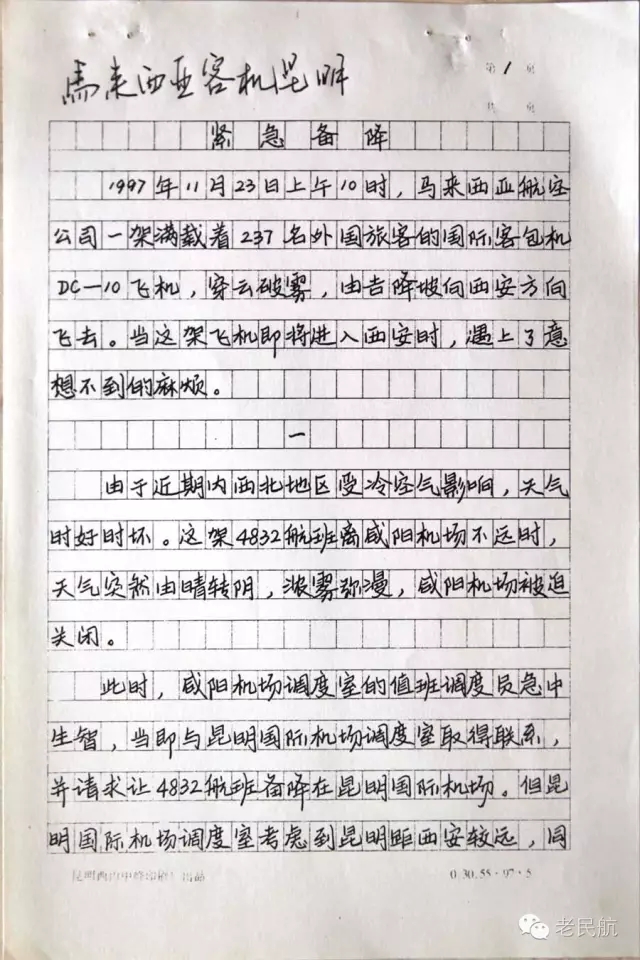 第1页
馬来西亚客机昆明
共 页
紧急备降
1997年11月23日上午10时，马来西亚航空
公司一架满载着237名外国旅客的国际客包机
DC—10飞机，穿云破雾，由吉隆坡向西安方向
飞去。当这架飞机即将进入西安时，遇上了意
想不到的麻烦。
一
由于近期内西北地区受冷空气影响，天气
时好时坏。这架4832航班离咸阳机场不远时，
天气突然由晴转阴，浓雾弥漫，咸阳机场被迫
关闭。
此时，咸阳机场调度室的值班调度员急中
生智，当即与昆明国际机场调度室取得联系，
并请求让4832航班备降在昆明国际机场。但昆
明国际机场调度室考虑到昆明距西安较远，同
0.30.55·97·5
老民航